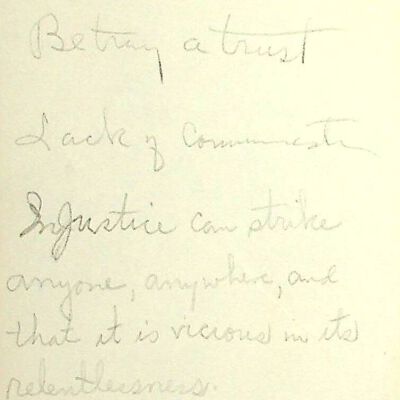 Betray a trust
Lack of Communicatn
InJustice can strike
anyone, anywhere, and
that it is vicious in its
relentlessness.